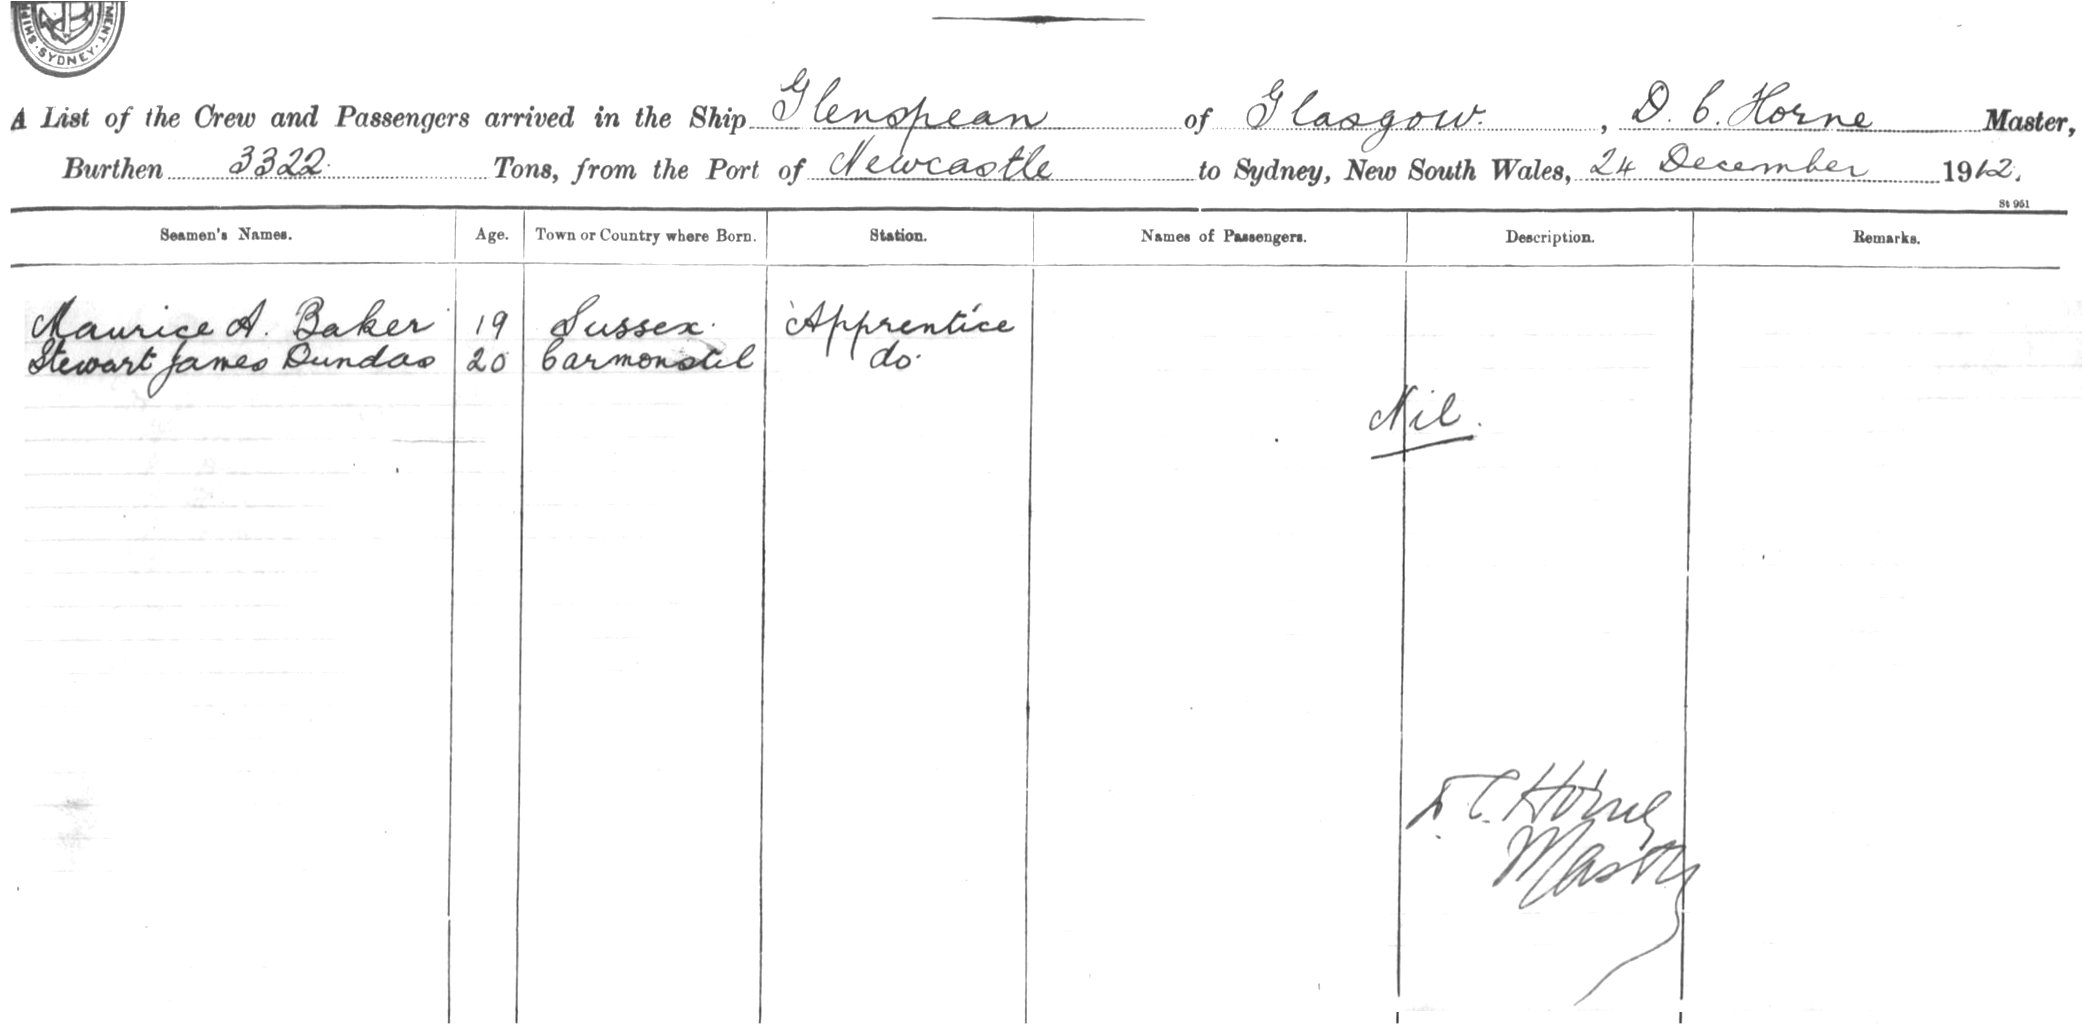 MENT. SYDNEY. SHIP
A List of the Crew and Passengers arrived in the Ship Glenspean of Glasgow. , D. C. Horne Master,
Burthen 3322 Tons, from the Port of Newcastle to Sydney, New South Wales, 24 December 1912.
St 951
Seamen's Names. Age. Town or Country where Born. Station. Names of Passengers. Description. Remarks.
Maurice A. Baker 19 Sussex. Apprentice
Stewart James Dundas 20 Carmonstil do.
Nil.
D. C. Horne
Master